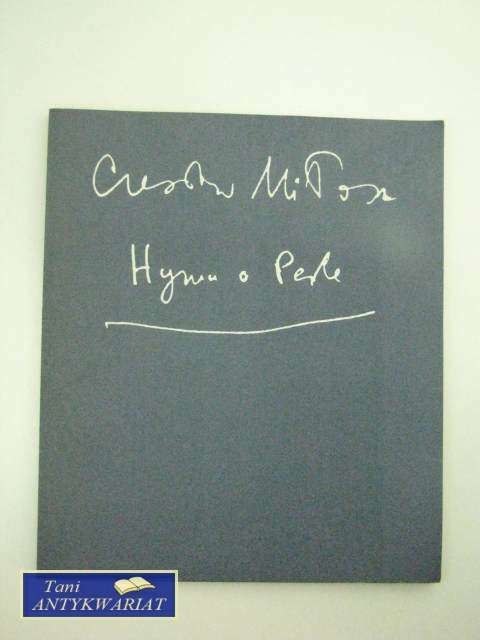 Czesław Miłosz
Hymn o Perle
Tani
ANTYKWARIAT